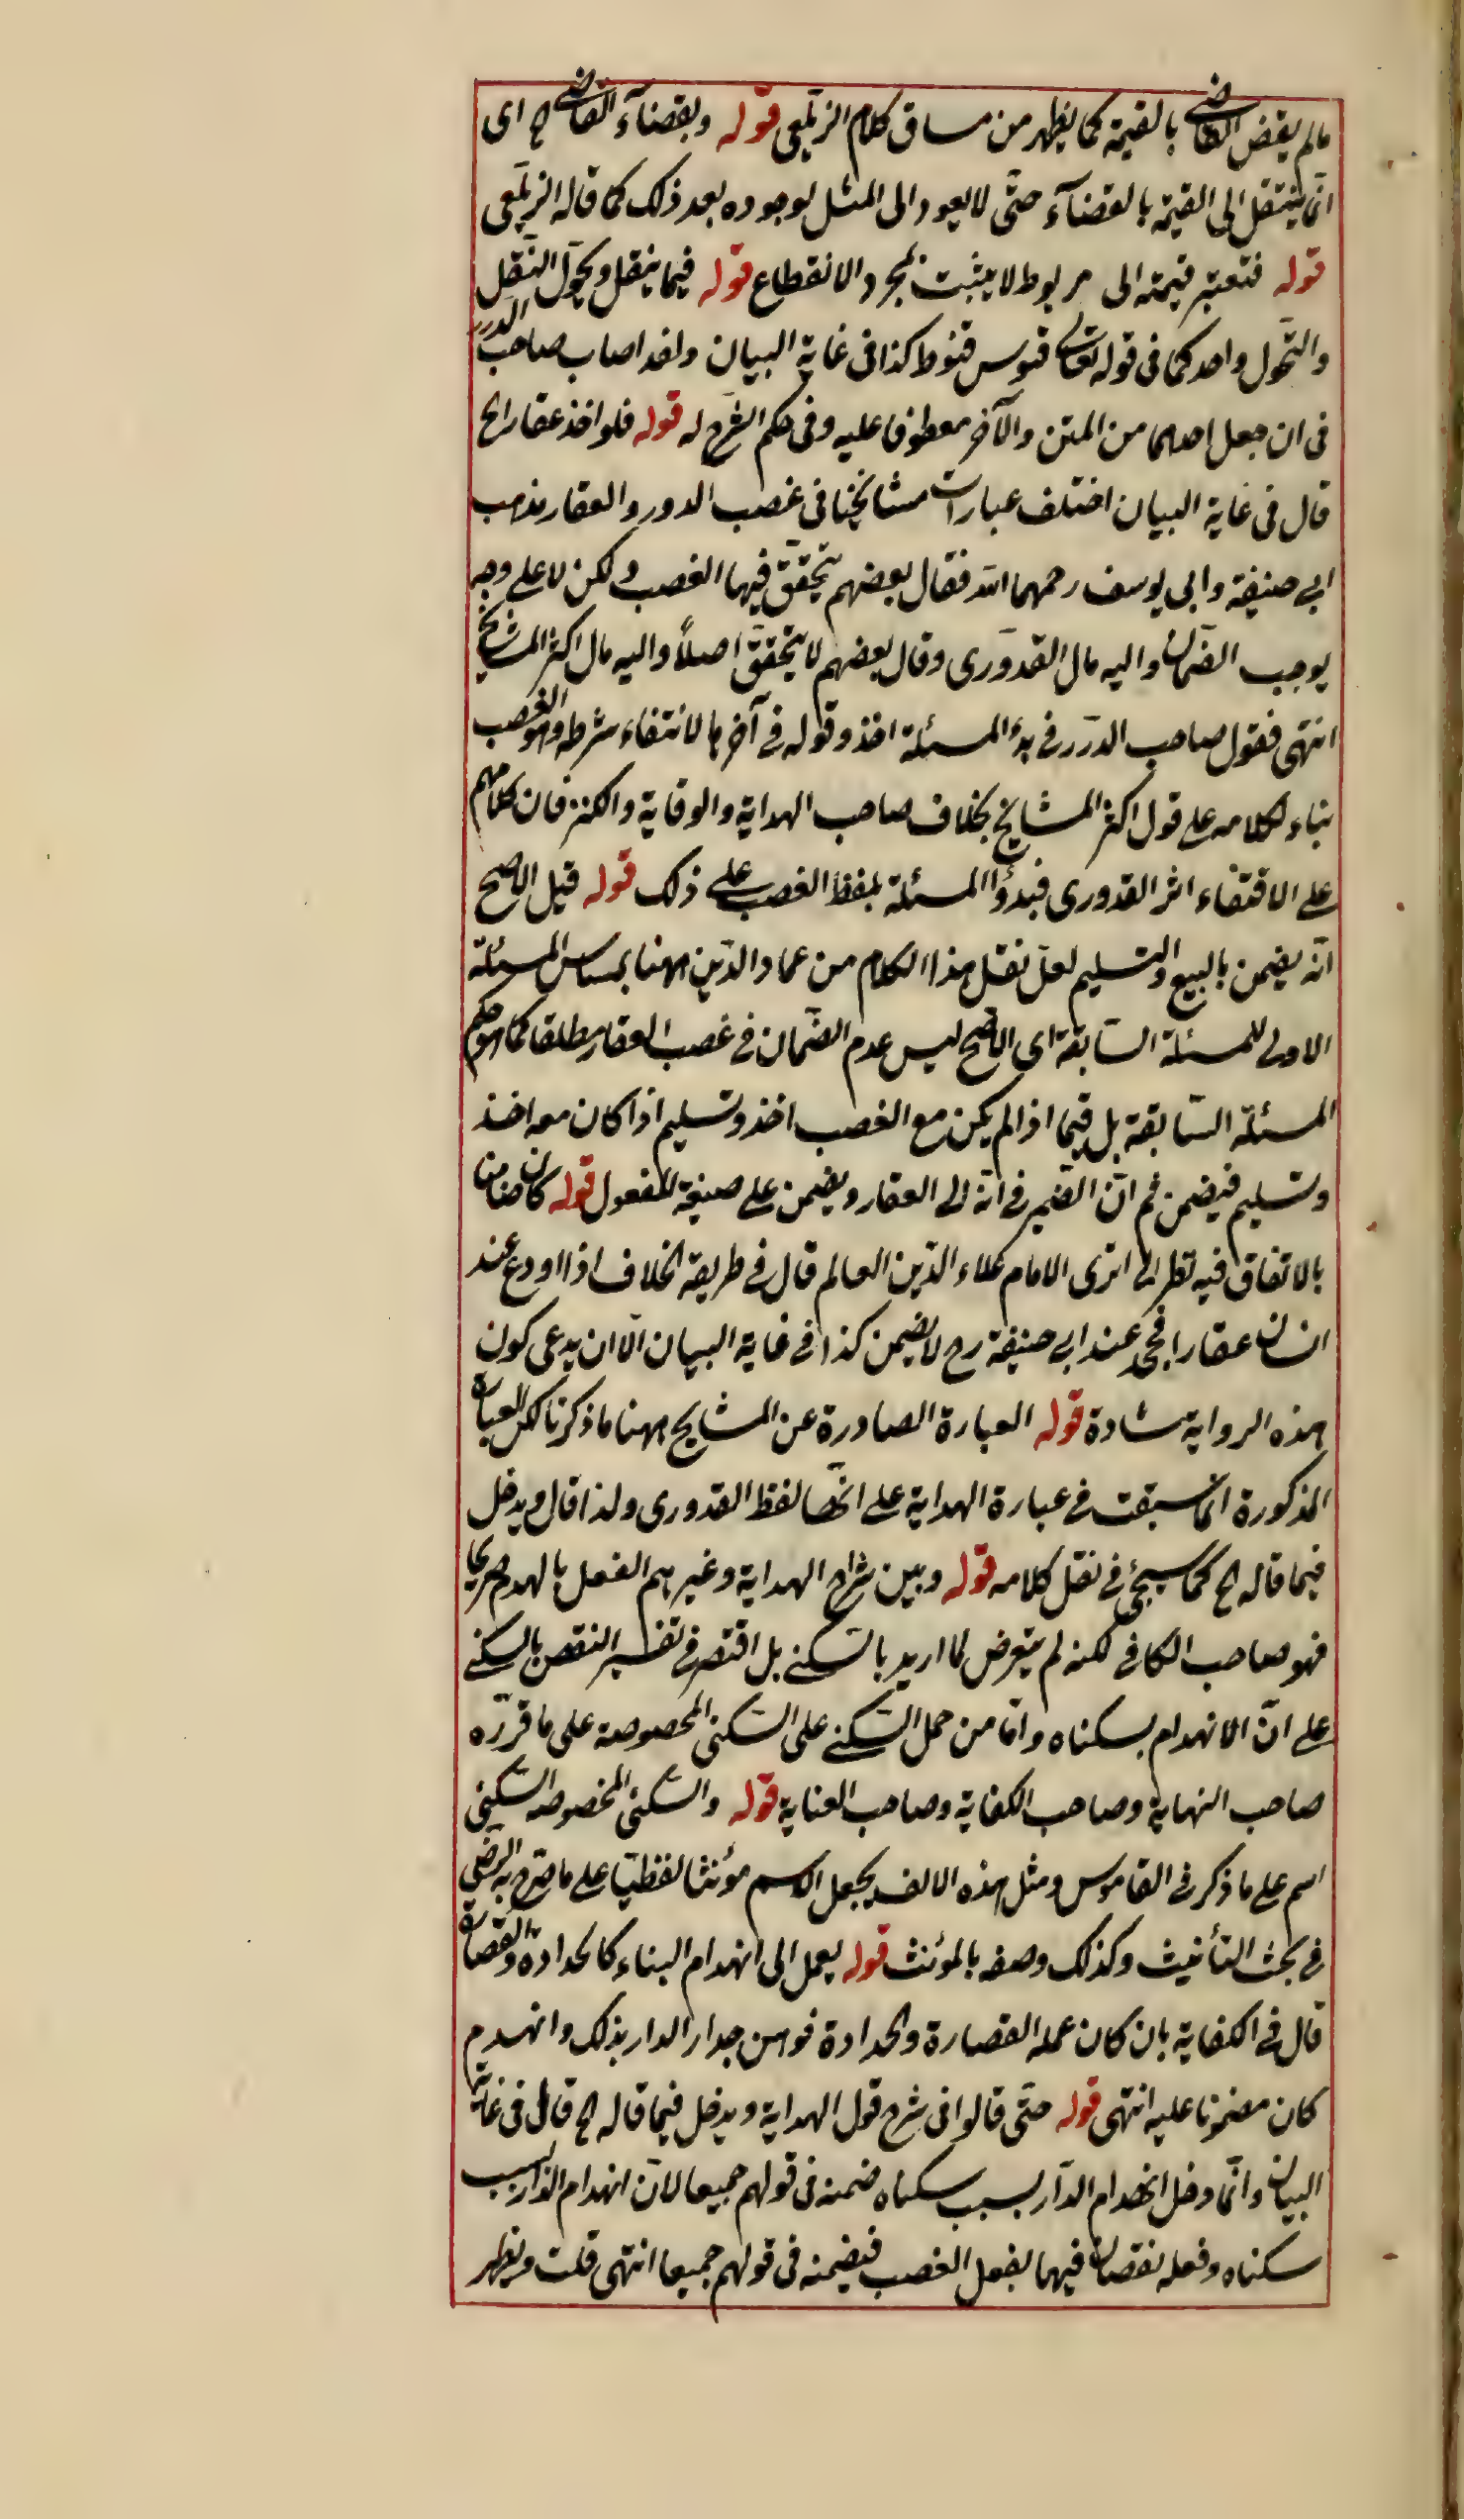 مالم يقض القاضى بالقيمة كما يظهر من مساق كلام الزيلعى قوله وبقضاء القاضى الخ اى
انما ينتقل الى القيمة بالقضاء حتى لا يعود الى المثل لوجوده بعد ذلك كما قاله الزيلعى
قوله فتعتبر قيمته الى مربوط لا يثبت بمجرد الانقطاع قوله فيما ينقل ويحول النقل
والتحول واحد كما فى قوله تعالى قنوط كذا فى غاية البيان ولقد اصاب صاحب الدرر
فى ان جعل احدهما من المتن والآخر معطوفا عليه وفى حكم الشرح له قوله فلو اخذ عقارا الخ
قال فى غاية البيان اختلف عبارات مشايخنا فى غصب الدور والعقار بمذهب
ابى حنيفة وابى يوسف رحمهما الله فقال بعضهم يتحقق فيها الغصب ولكن لا على وجه
يوجب الضمان واليه مال القدورى وقال بعضهم لا يتحقق اصلاً واليه مال اكثر المشايخ
انتهى فقول صاحب الدرر فى بدء المسئلة اخذ وقوله فى آخرها لانتفاء شرطه وهو الغصب
بناء لكلامه على قول اكثر المشايخ بخلاف صاحب الهداية والوقاية والكنز فان كلامهم
على الاقتفاء اثر القدورى فبدؤا المسئلة بلفظ الغصب على ذلك قوله قيل الاصح
انه يضمن بالبيع والتسليم لعل نقل هذا الكلام من عماد الدين ههنا بمساس المسئلة
الاولى للمسئلة السابقة اى الاصح ليس عدم الضمان فى غصب العقار مطلقا كما هو حكم
المسئلة السابقة بل فيما اذا لم يكن مع الغصب اخذ وتسليم اذا كان معه اخذ
وتسليم فيضمن ثم ان الضمير فى انه الى العقار ويضمن على صيغة المفعول قوله كان ضامنا
بالاتفاق فيه نظر الا ترى الامام علاء الدين العالم قال فى طريقة الخلاف اذا اودع عند
انسان عقارا فجحد عند ابى حنيفة رح لا يضمن كذا فى غاية البيان الا ان يدعى كون
هذه الرواية شادة قوله العبارة الصادرة عن المشايخ ههنا ما ذكرنا لكن العبارة
المذكورة انما سبقت فى عبارة الهداية على انها لفظ القدورى ولذا قال ويدخل
فيما قاله الخ كما سيجئ فى نقل كلامه قوله وبين شراح الهداية وغيرهم الفعل بالهدم صريحا
فهو صاحب الكافى لكنه لم يتعرض لما اريد بالسكنى بل اقتصر فى تفسير النقص بالسكنى
على ان الانهدام بسكناه واما من حمل السكنى على السكنى المخصوصة على ما قرره
صاحب النهاية وصاحب الكفاية وصاحب العناية قوله والسكنى المخصوصة السكنى
اسم على ما ذكر فى القاموس ومثل هذه الالف يجعل الاسم مؤنثا لفظيا على ما صرح به الرضى
فى بحث التأنيث وكذلك وصفه بالمؤنث قوله يعمل الى انهدام البناء كالحدادة والقصارة
قال فى الكفاية بان كان عمله القصارة والحدادة فوهن جدار الدار بذلك وانهدم
كان مضمونا عليه انتهى قوله حتى قالوا فى شرح قول الهداية ويدخل فيما قاله الخ قال فى غاية
البيان وانما دخل انهدام الدار بسبب سكناه ضمنه فى قولهم جميعا لان انهدام الدار بسبب
سكناه وفعله نقصان فيها بفعل الغصب فيضمنه فى قولهم جميعا انتهى قلت ويظهر